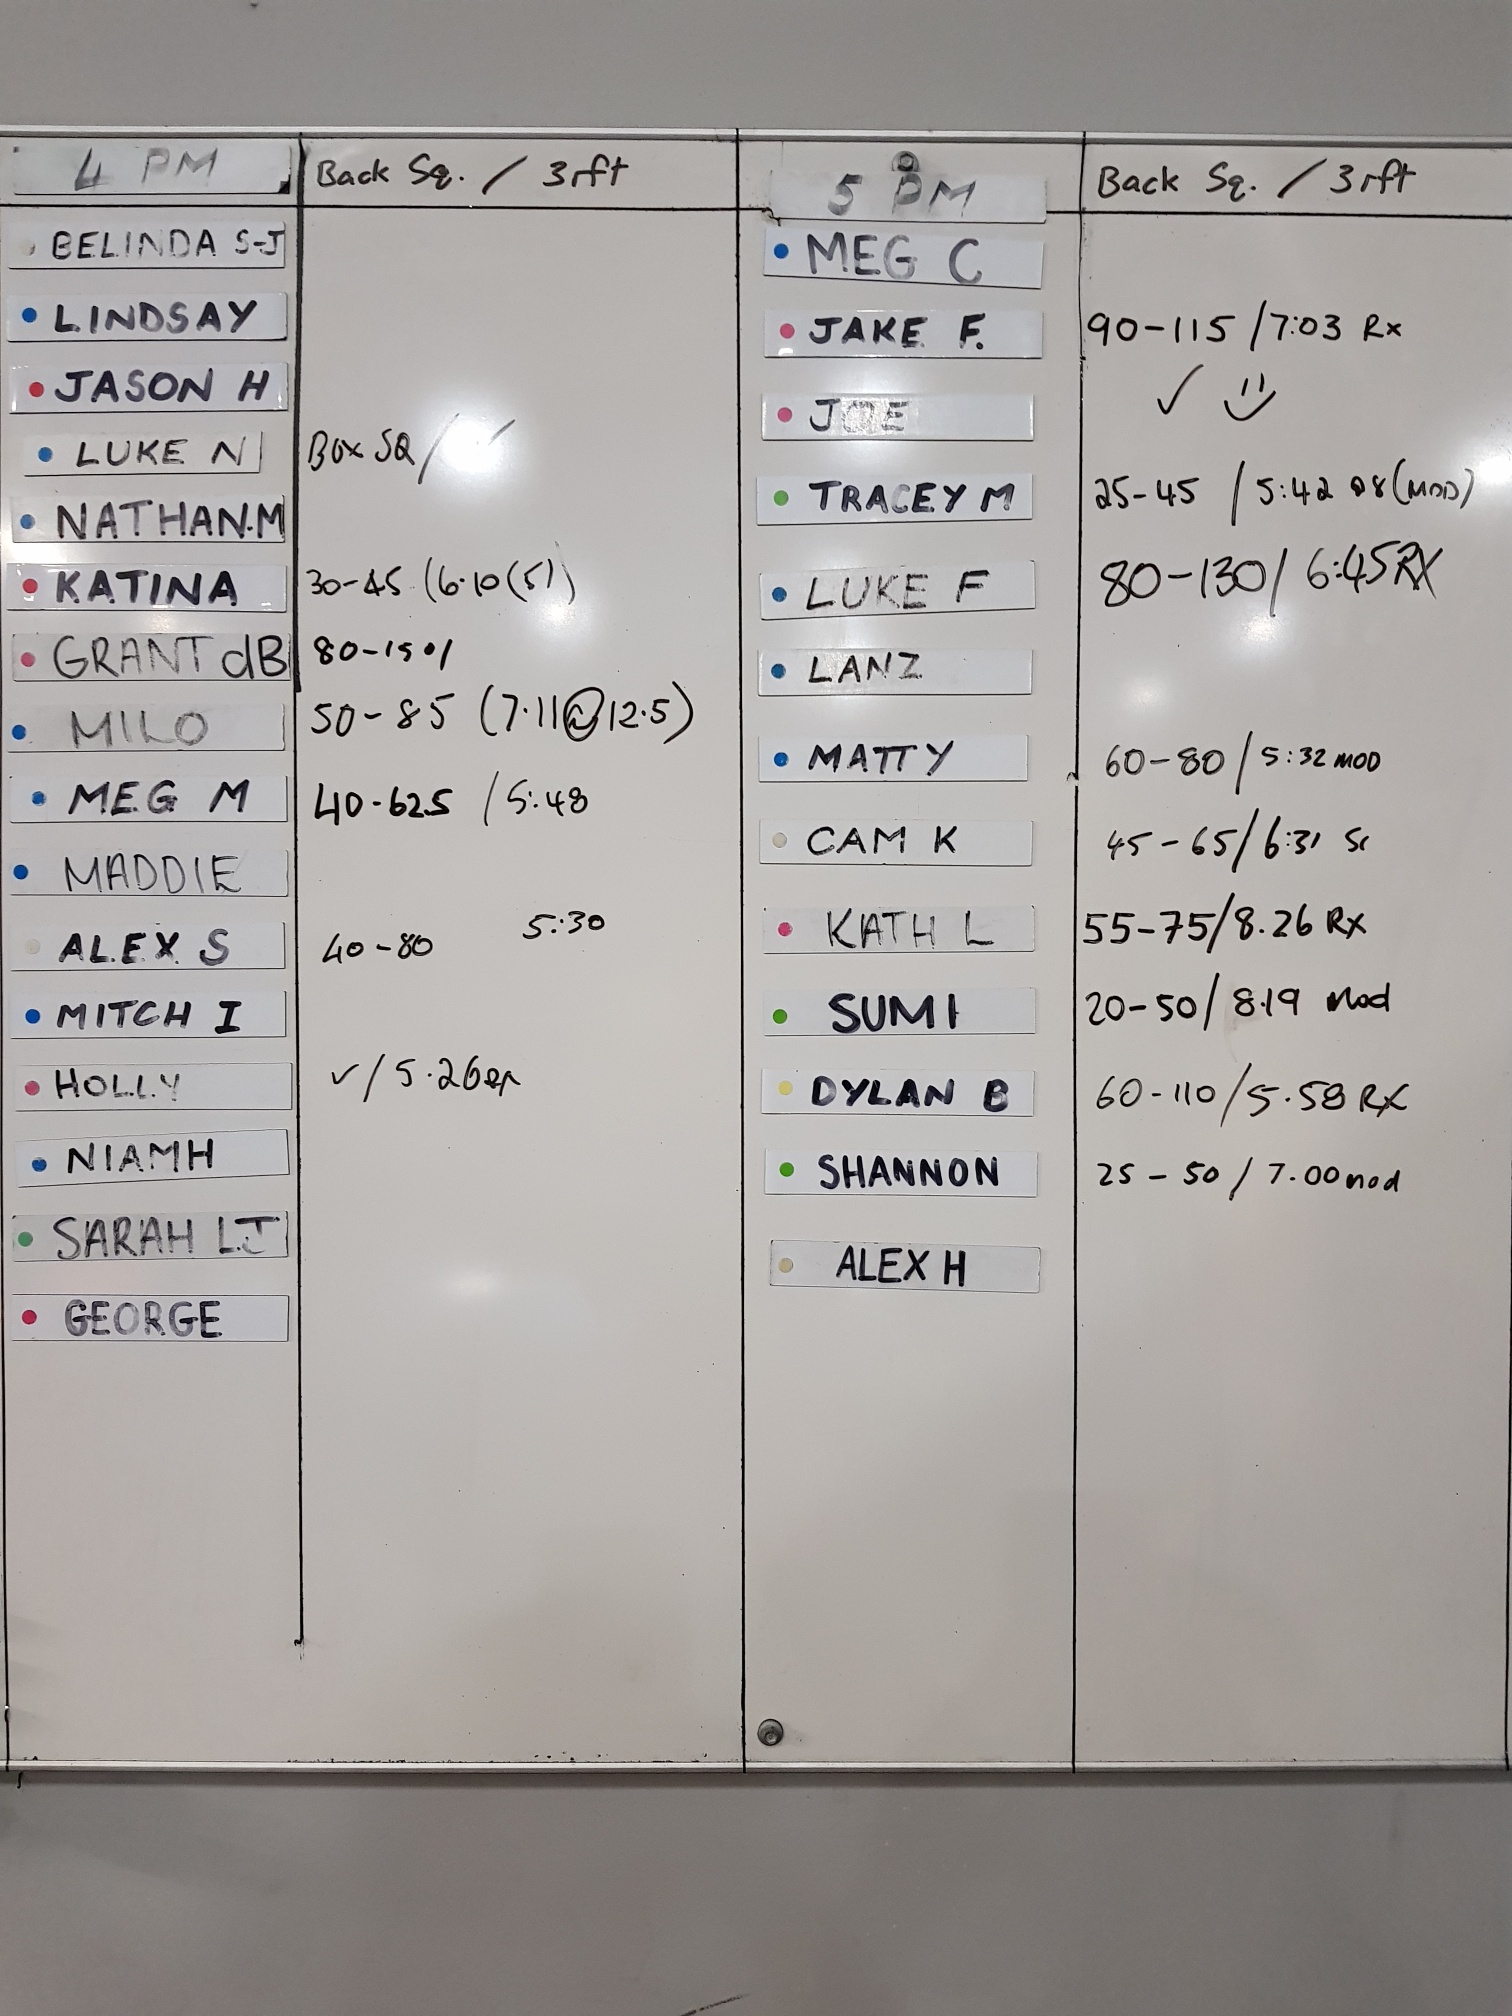 4 PM
Back Sq. / 3rft
BELINDA S-J
LINDSAY
JASON H
LUKE N Box SQ /
NATHAN.M
KATINA 30-45 (6.10 (5))
GRANT dB 80-150/
MILO 50-85 (7.11 @ 12.5)
MEG M 40-62.5 / 5:48
MADDIE
ALEX S 40-80 5:30
MITCH I
HOLLY ✓/ 5.26
NIAMH
SARAH LJ
GEORGE
5 PM
Back Sq. / 3rft
MEG C
JAKE F. 90-115 / 7:03 Rx
JOE ✓
TRACEY M 25-45 / 5:42 (MOD)
LUKE F 80-130 / 6:45 RX
LANZ
MATTY 60-80 / 5:32 MOD
CAM K 45-65/6:31 Sc
KATH L 55-75/8.26 Rx
SUMI 20-50/ 8.19 Mod
DYLAN B 60-110/5.58 RX
SHANNON 25-50 / 7.00 mod
ALEX H